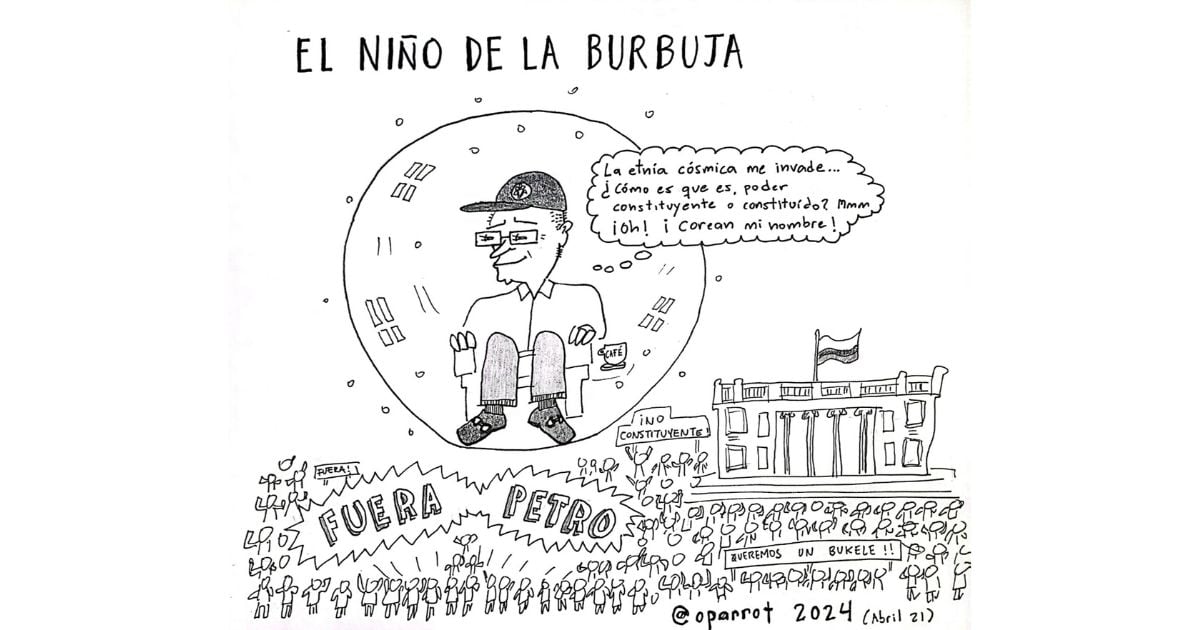 EL NIÑO DE LA BURBUJA
La etnia cósmica me invade...
¿Cómo es que es, poder
constituyente o constituído? Mmm
¡Oh! ¡Corean mi nombre!
CAFÉ
¡NO
CONSTITUYENTE!
FUERA!
FUERA PETRO
QUEREMOS UN BUKELE!!
@oparrot 2024 (Abril 21)